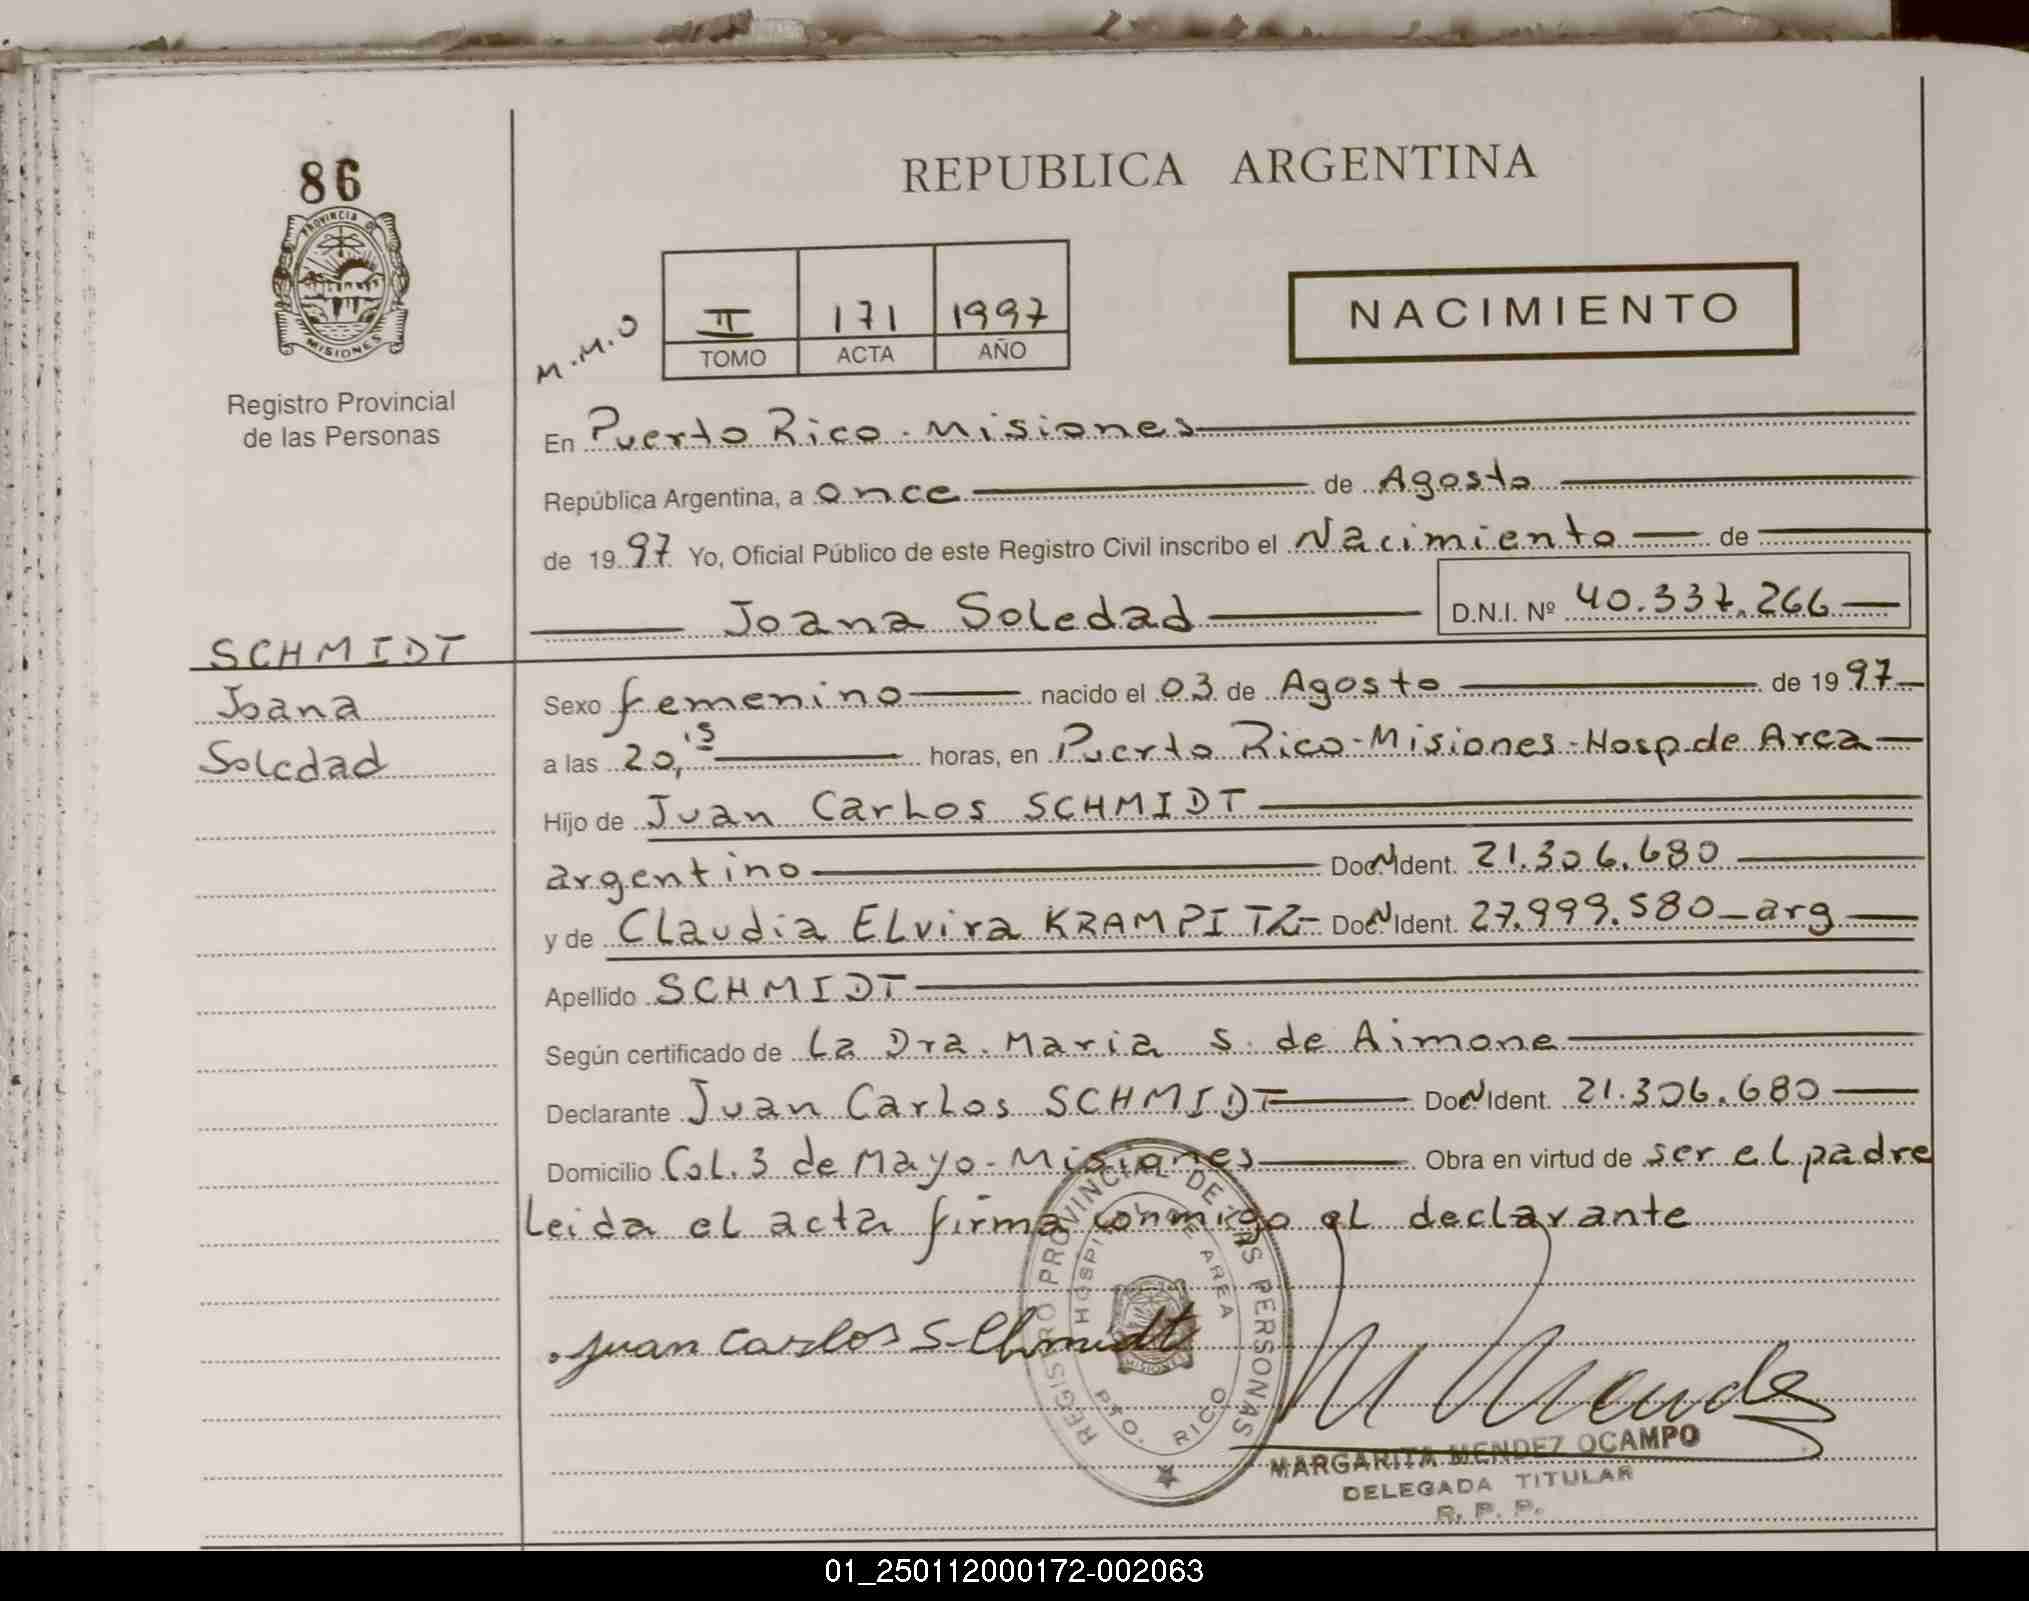 86
PROVINCIA DE
MISIONES
Registro Provincial
de las Personas
SCHMIDT
Joana
Soledad
REPUBLICA ARGENTINA
M.M.O
II 171 1997
TOMO ACTA AÑO
NACIMIENTO
En Puerto Rico - Misiones
República Argentina, a once de Agosto
de 1997 Yo, Oficial Público de este Registro Civil inscribo el Nacimiento de
Joana Soledad D.N.I. Nº 40.337.266
Sexo femenino nacido el 03 de Agosto de 1997
a las 20,15 horas, en Puerto Rico - Misiones - Hosp. de Area
Hijo de Juan Carlos SCHMIDT
argentino Doc N Ident. 21.306.680
y de Claudia Elvira KRAMPITZ Doc N Ident. 27.999.580 - arg
Apellido SCHMIDT
Según certificado de La Dra. Maria S. de Aimone
Declarante Juan Carlos SCHMIDT Doc N Ident. 21.306.680
Domicilio Col. 3 de Mayo - Misiones Obra en virtud de ser el padre
Leida el acta firma conmigo el declarante
Juan Carlos Schmidt
REGISTRO PROVINCIAL DE LAS PERSONAS
HOSPITAL DE AREA
MISIONES
PTO. RICO
M Mendez
MARGARITA MENDEZ OCAMPO
DELEGADA TITULAR
R. P. P.
01_250112000172-002063